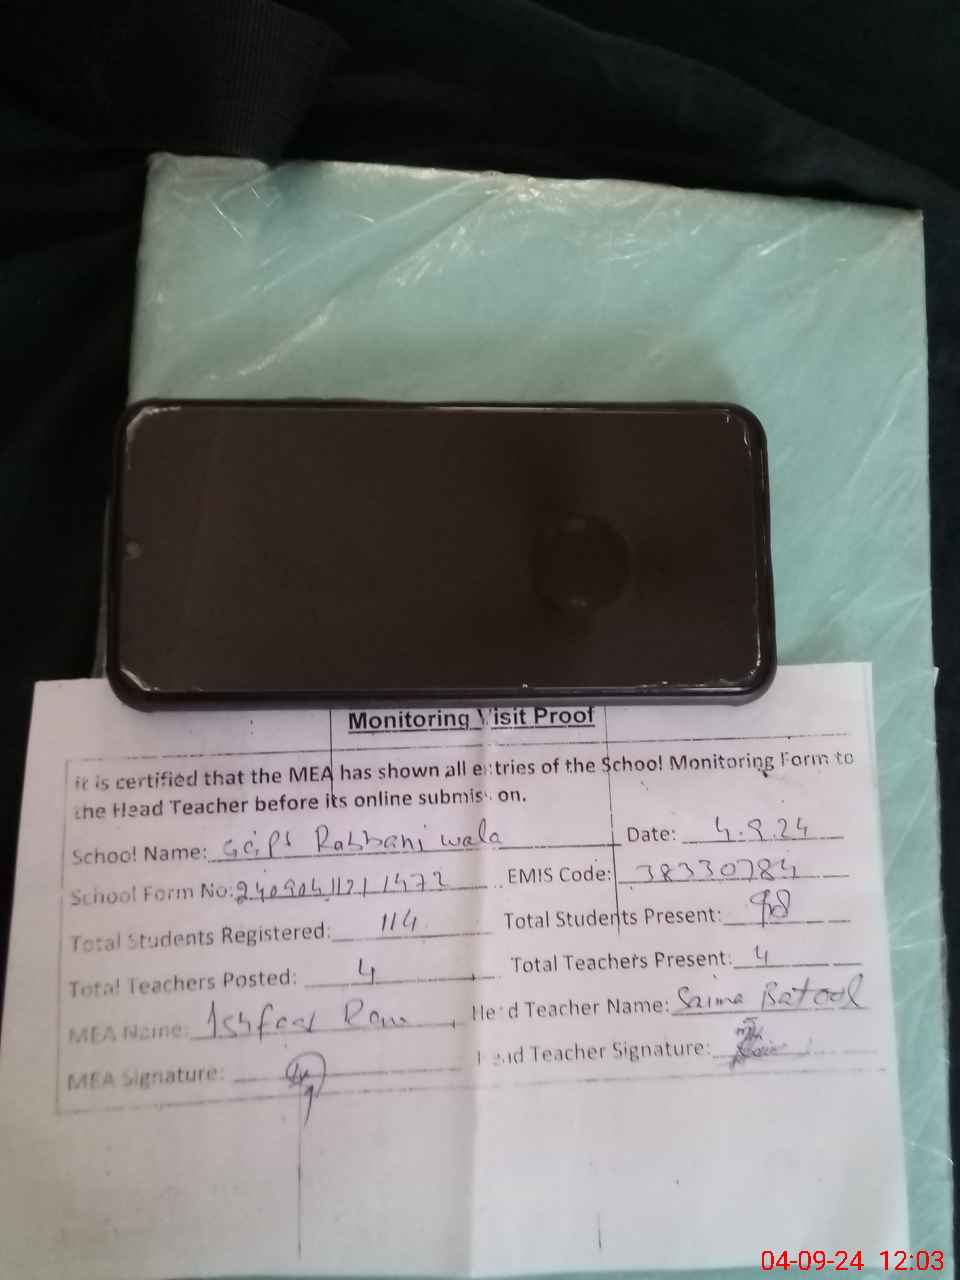 Monitoring Visit Proof
it is certified that the MEA has shown all entries of the School Monitoring Form to
the Head Teacher before its online submission.
School Name: GGPS Rabbani wala Date: 4.9.24
School Form No: 24090411211472 EMIS Code: 38330784
Total Students Registered: 114 Total Students Present: 98
Total Teachers Posted: 4 Total Teachers Present: 4
MEA Name: Head Teacher Name: Saima Batool
MEA Signature: Head Teacher Signature:
04-09-24 12:03